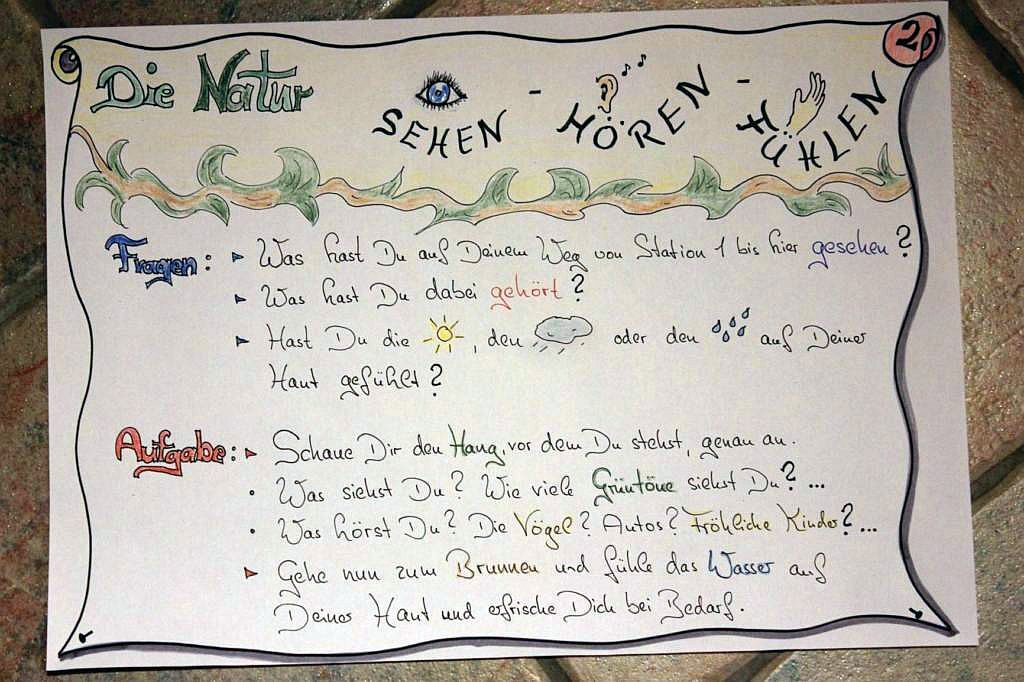 Die Natur SEHEN - HÖREN - FÜHLEN
Fragen: Was hast Du auf Deinem Weg von Station 1 bis hier gesehen?
Was hast Du dabei gehört?
Hast Du die , den oder den auf Deiner
Haut gefühlt?
Aufgabe: Schaue Dir den Hang, vor dem Du stehst, genau an.
• Was siehst Du? Wie viele Grüntöne siehst Du? ...
• Was hörst Du? Die Vögel? Autos? Fröhliche Kinder? ...
Gehe nun zum Brunnen und fühle das Wasser auf
Deiner Haut und erfrische Dich bei Bedarf.